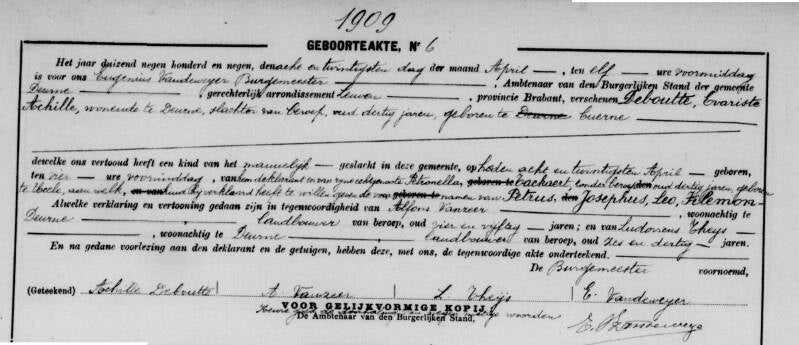 1909
GEBOORTEAKTE, Nr 6
Het jaar duizend negen honderd en negen, den acht en twintigsten dag der maand April —, ten elf — ure voormiddag
is voor ons Eugenius Vandeweyer Burgemeester —, Ambtenaar van den Burgerlijken Stand der gemeente
Deurne — gerechterlijk arrondissement Leuven —, provincie Brabant, verschenen Deboutte, Evariste
Achille, wonende te Deurne, slachter van beroep, oud dertig jaren, geboren te Deurne Cuerne
dewelke ons vertoond heeft een kind van het mannelijk — geslacht in deze gemeente, op heden acht en twintigsten April — geboren,
ten vier — ure voormiddag, van hem deklarant en van zyne echtgenoote Petronella, geboren te Caekaert, zonder beroep den oud dertig jaren, geboren
te Uccle, aan welk, en van kind hy verklaard heeft te willen geven de geboren te namen van Petrus, den Josephus, Leo, Filemon-
Alwelke verklaring en vertooning gedaan zijn in tegenwoordigheid van Alfons Vanzeer —, woonachtig te
Deurne —, landbouwer van beroep, oud vier en vijftig — jaren; en van Ludovicus Theys
—, woonachtig te Deurne —, landbouwer van beroep, oud zes en dertig — jaren.
En na gedane voorlezing aan den deklarant en de getuigen, hebben deze, met ons, de tegenwoordige akte onderteekend.
De Burgemeester voornoemd,
(Geteekend) Achille Deboutte A. Vanzeer L. Theijs E. Vandeweyer
VOOR GELIJKVORMIGE KOPIJ
Keure de doorhaling woorden
De Ambtenaar van den Burgerlijken Stand,
E. Vandeweyer